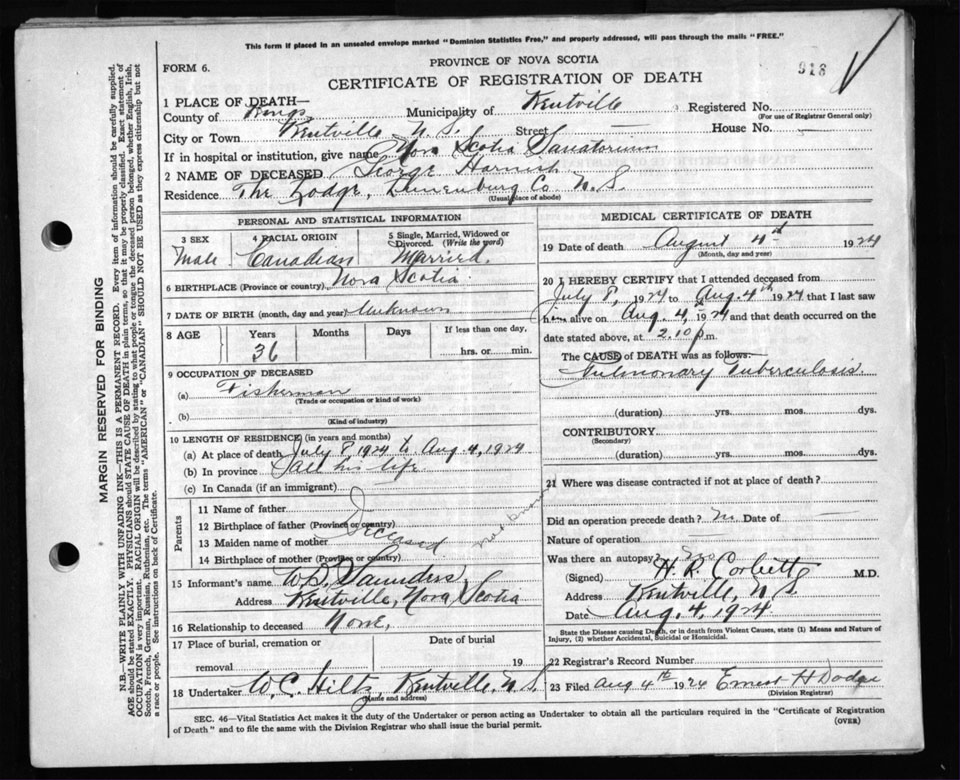 This form if placed in an unsealed envelope marked "Dominion Statistics Free," and properly addressed, will pass through the mails "FREE."
FORM 6.
PROVINCE OF NOVA SCOTIA
CERTIFICATE OF REGISTRATION OF DEATH
918
1 PLACE OF DEATH—
County of Kings Municipality of Kentville Registered No.
(For use of Registrar General only)
City or Town Kentville N. S. Street — House No.
If in hospital or institution, give name Nova Scotia Sanatorium
2 NAME OF DECEASED George Harnish
Residence The Lodge, Lunenburg Co. N. S.
(Usual place of abode)
PERSONAL AND STATISTICAL INFORMATION
3 SEX
Male
4 RACIAL ORIGIN
Canadian
5 Single, Married, Widowed or
Divorced. (Write the word)
Married.
6 BIRTHPLACE (Province or country) Nova Scotia
7 DATE OF BIRTH (month, day and year) Unknown
8 AGE
Years
36
Months
Days
If less than one day,
hrs. or min.
9 OCCUPATION OF DECEASED
(a) Fisherman
(Trade or occupation or kind of work)
(b)
(Kind of industry)
10 LENGTH OF RESIDENCE (in years and months)
(a) At place of death July 8, 1924 to Aug. 4, 1924
(b) In province all his life
(c) In Canada (if an immigrant)
Parents
11 Name of father
12 Birthplace of father (Province or country)
13 Maiden name of mother
14 Birthplace of mother (Province or country)
Deceased
not known
15 Informant's name W. S. Saunders
Address Kentville, Nova Scotia
16 Relationship to deceased None,
17 Place of burial, cremation or
removal
Date of burial
19
18 Undertaker W. C. Hiltz, Kentville, N. S.
(name and address)
MEDICAL CERTIFICATE OF DEATH
19 Date of death August 4th 1924
(Month, day and year)
20 I HEREBY CERTIFY that I attended deceased from
July 8, 1924 to Aug. 4th 1924 that I last saw
him alive on Aug. 4, 1924 and that death occurred on the
date stated above, at 2.10 p.m.
The CAUSE of DEATH was as follows:
Pulmonary Tuberculosis.
(duration) yrs. mos. dys.
CONTRIBUTORY.
(Secondary)
(duration) yrs. mos. dys.
21 Where was disease contracted if not at place of death?
Did an operation precede death? No Date of
Nature of operation —
Was there an autopsy? No
(Signed) H. R. Corbett M.D.
Address Kentville, N. S.
Date Aug. 4, 1924
State the Disease causing Death, or in death from Violent Causes, state (1) Means and Nature of
Injury, (2) whether Accidental, Suicidal or Homicidal.
22 Registrar's Record Number
23 Filed Aug 4th 1924 Ernest H Dodge
(Division Registrar)
SEC. 46—Vital Statistics Act makes it the duty of the Undertaker or person acting as Undertaker to obtain all the particulars required in the "Certificate of Registration
of Death" and to file the same with the Division Registrar who shall issue the burial permit.
(OVER)
MARGIN RESERVED FOR BINDING
N.B.—WRITE PLAINLY WITH UNFADING INK—THIS IS A PERMANENT RECORD. Every item of information should be carefully supplied.
AGE should be stated EXACTLY. PHYSICIANS should STATE CAUSE OF DEATH in plain terms, so that it may be properly classified. Exact statement of
OCCUPATION is very important. RACIAL ORIGIN will be described by stating to what people or tongue the deceased person belonged, whether English, Irish,
Scotch, French, German, Russian, Ruthenian, etc. The terms "AMERICAN" or "CANADIAN" SHOULD NOT BE USED as they express citizenship but not
a race or people. See instructions on back of Certificate.